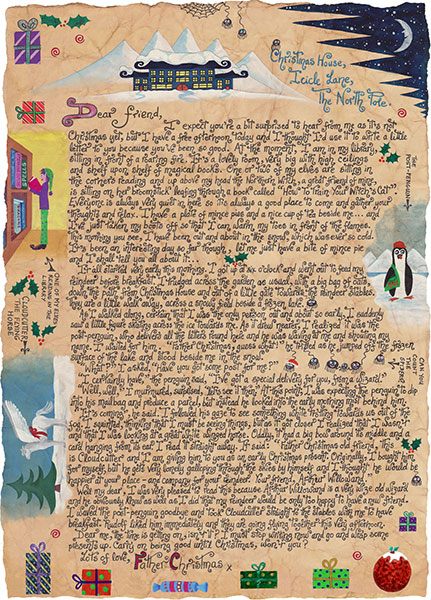 Christmas House,
Icicle Lane,
The North Pole.
Dear Friend,
I expect you're a bit surprised to hear from me as it's not
Christmas yet, but I have a free afternoon today and I thought I'd use it to write a little
letter to you because you've been so good. At the moment, I am in my library,
sitting in front of a roaring fire. It's a lovely room, very big with high ceilings
and shelf upon shelf of magical books. One or two of my elves are sitting in
the corners reading and up above my head the Northern Witch, a great friend of mine,
is sitting on her broomstick leafing through a book called "How to Train Your Witch's Cat".
Everyone is always very quiet in here so it's always a good place to come and gather your
thoughts and relax. I have a plate of mince pies and a nice cup of tea beside me... and
I've just taken my boots off so that I can warm my toes in front of the flames.
This morning you see, I have been out and about in the snow, which was ever so cold.
It's been an interesting day so far though, let me just have a bite of mince pie
and I shall tell you all about it...
It all started very early this morning. I got up at six o'clock and went out to feed my
reindeer before breakfast. I trudged across the garden as usual, with a big bag of oats,
along the path from Christmas House and out of a little gate towards the reindeer stables.
They are a little walk away, across a snowy field beside a frozen lake.
As I walked along, certain that I was the only person out and about so early, I suddenly
saw a little figure skating across the ice towards me. As it drew nearer, I realized it was the
post-penguin, who delivers all the letters round here and he was waving like and shouting my
name. I waited for him. "Father Christmas! Guess what!" he trilled as he jumped off the frozen
surface of the lake and stood beside me in the snow.
"What?" I asked, "Have you got some post for me?"
"I certainly have," the penguin said, "I've got a special delivery for you, from a wizard!"
"Well, well," I murmured, surprised, "let's see it then." At this point, I was expecting the penguin to dip
into his mailbag and produce a parcel, but instead he looked into the early morning mist behind him.
"It's coming," he said. I followed his gaze to see something white trotting towards us out of the
fog. I squinted, thinking that I must be seeing things, but as it got closer I realized that I wasn't
and that I was looking at a great white winged horse. Oddly, it had a big bow around its middle and a
card hanging from its ear. I read it straight away. It said, "Father Christmas old friend, this
is Cloudcutter and I am giving him to you as an early Christmas present. Originally, I bought him
for myself, but he gets very lonely galloping through the skies by himself and I thought he would be
happier at your place - and company for your reindeer. Your friend, Arthur Willowand."
Well my dear, I was very pleased to read this because Arthur Willowand is a very wise old wizard
and he obviously knew as well as I did that my reindeer would be only too happy to have a new friend.
I waved the post-penguin goodbye and took Cloudcutter straight to the stables with me to have
breakfast. Rudolf liked him immediately and they are going flying together this very afternoon.
Dear me, the time is getting on, isn't it? I must stop writing now and go and wrap some
presents up. Carry on being good until Christmas, won't you?
Lots of love, Father Christmas x
THE POST-PENGUIN
ONE OF MY ELVES READING IN THE LIBRARY
CLOUDCUTTER THE FLYING HORSE
CAN YOU COUNT THE SPIDERS?